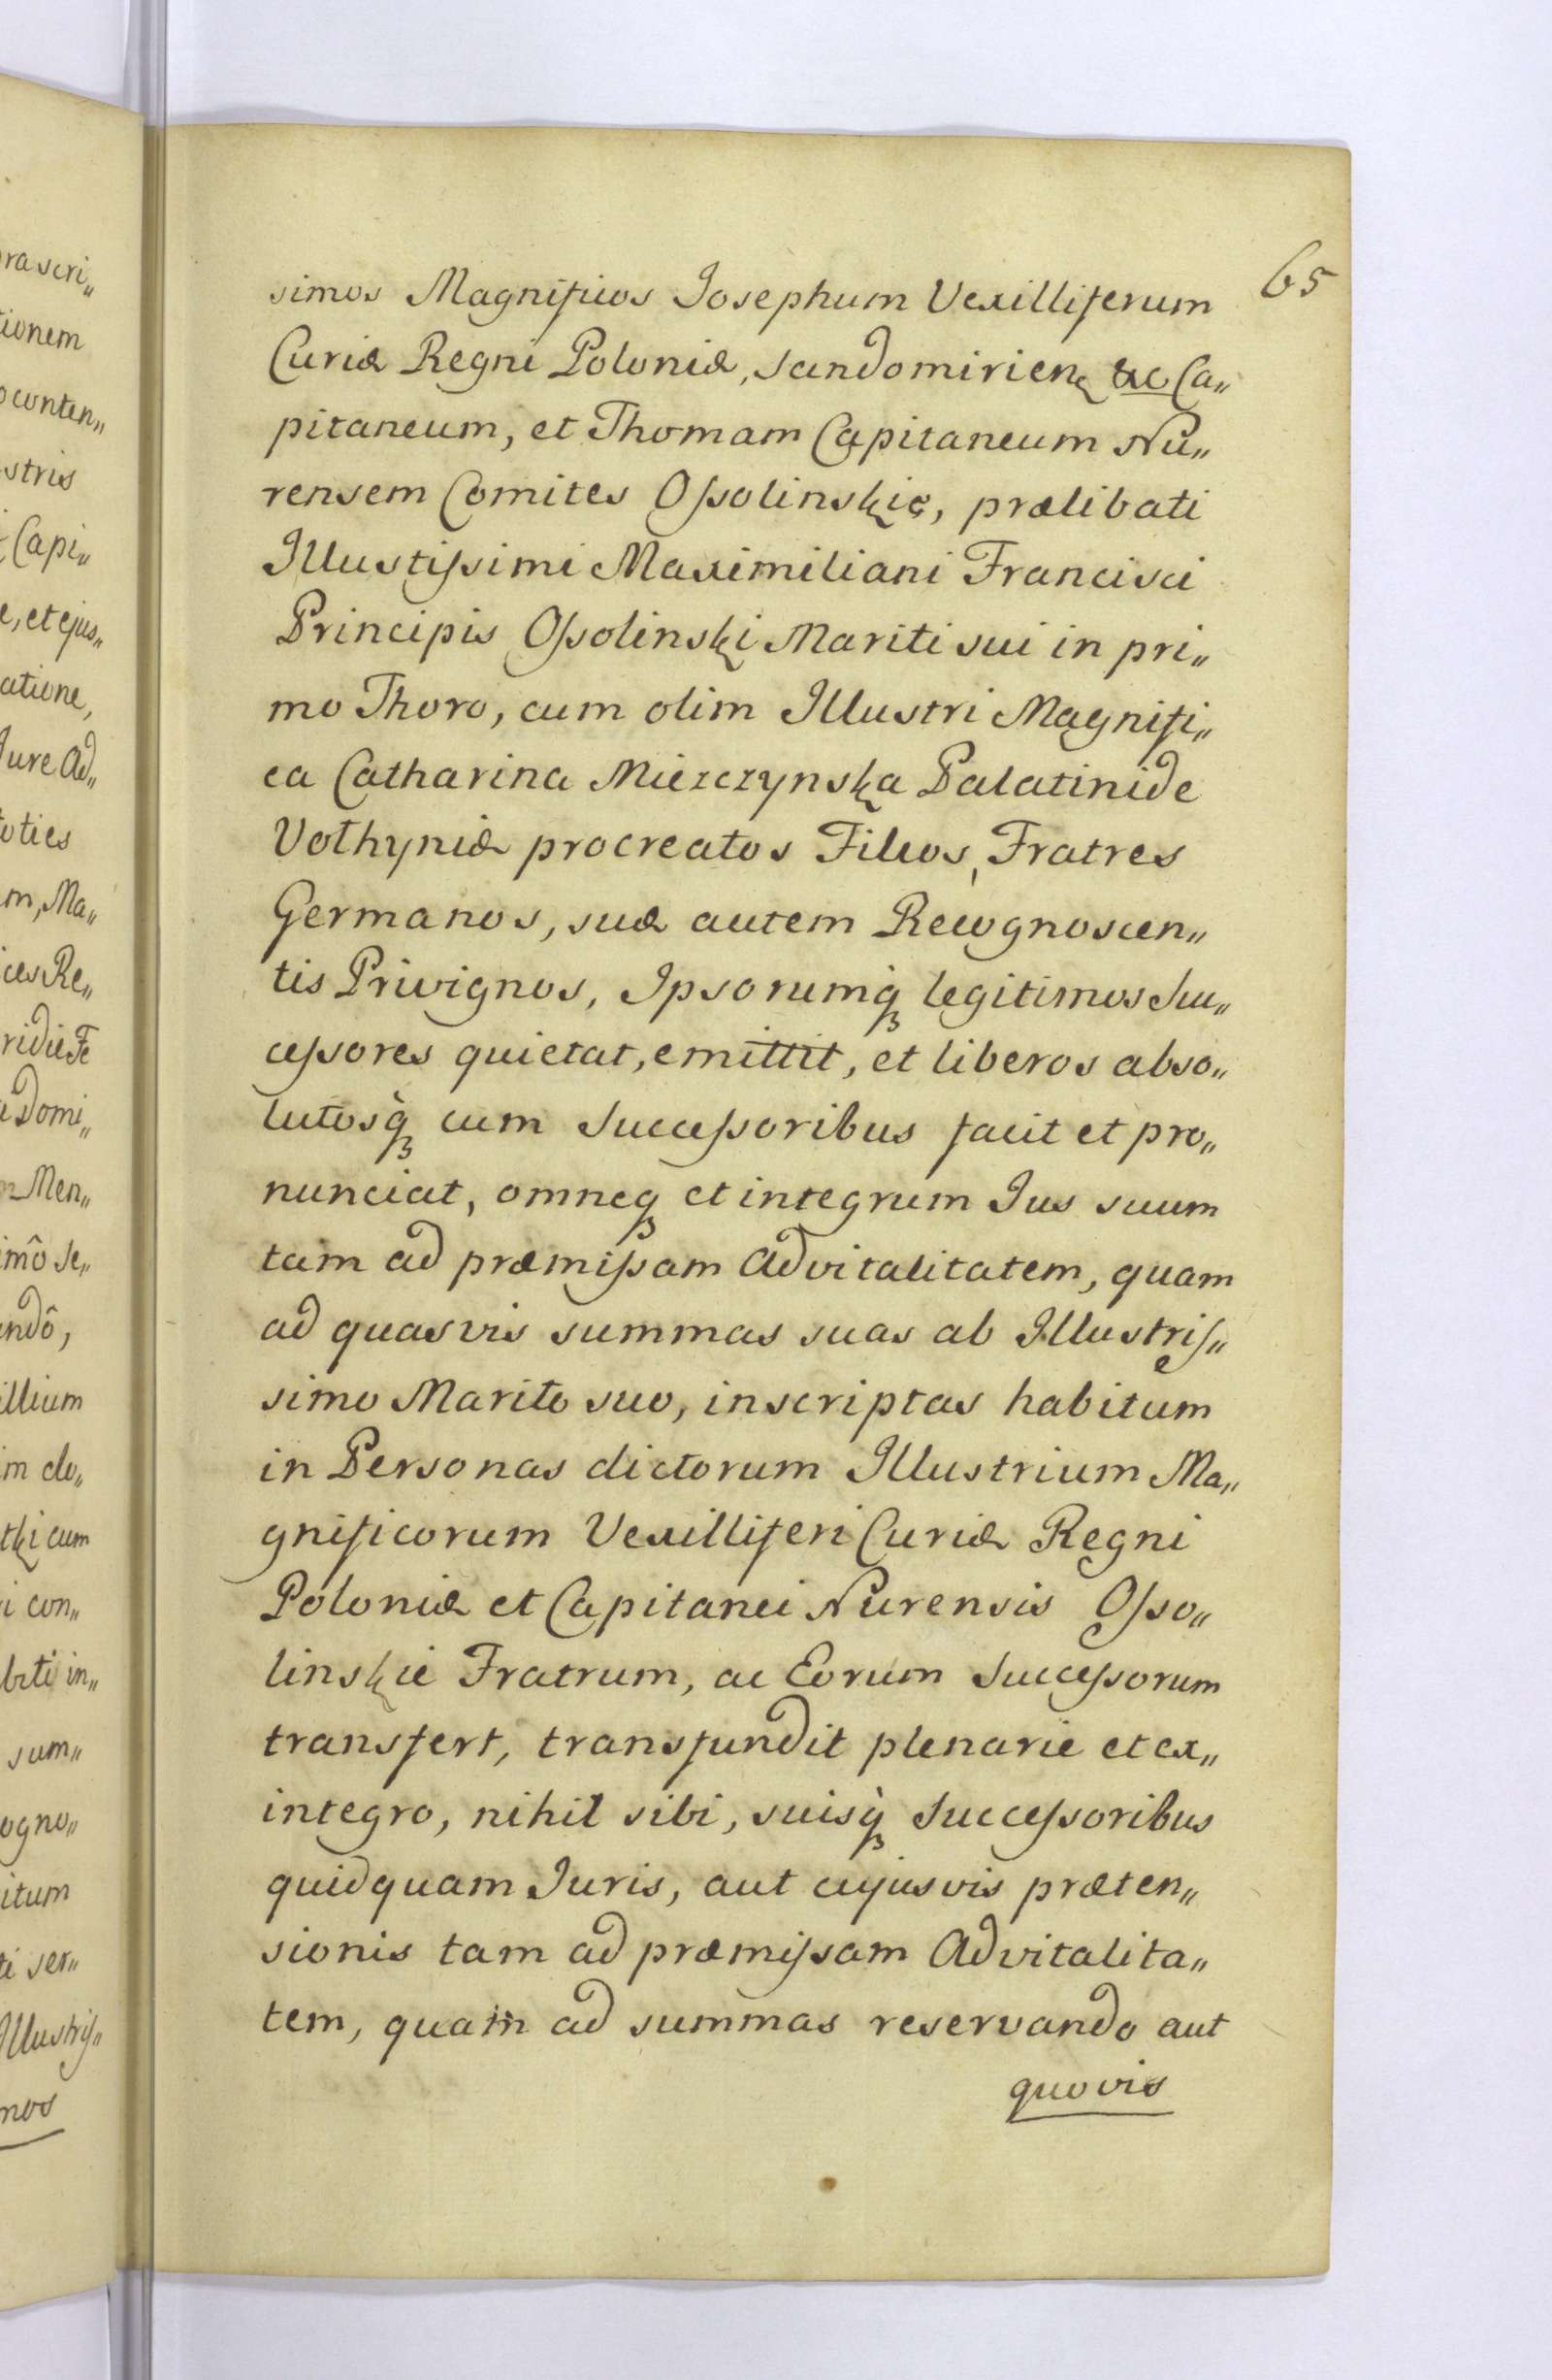 65
simos Magnificos Josephum Vexilliferum
Curiæ Regni Poloniæ, Sandomirien &c Ca„
pitaneum, et Thomam Capitaneum Nu„
rensem Comites Ossolinskie, prælibati
Illustissimi Maximiliani Francisci
Principis Ossolinski Mariti sui in pri„
mo Thoro, cum olim Illustri Magnifi„
ca Catharina Mierczynska Palatinide
Volhyniæ procreatos Filios, Fratres
Germanos, suæ autem Recognoscen„
tis Privignos, Ipsorumq̀ legitimos Suc„
cessores quietat, emittit, et liberos abso„
lutosq̀ cum Successoribus facit et pro„
nunciat, omneq et integrum Jus suum
tam ad præmissam Advitalitatem, quam
ad quasvis summas suas ab Illustris„
simo Marito suo, inscriptas habitum
in Personas dictorum Illustrium Ma„
gnificorum Vexilliferi Curiæ Regni
Poloniæ et Capitanei Nurensis Osso„
linskie Fratrum, ac Eorum Successorum
transfert, transfundit plenarie et ex„
integro, nihil sibi, suisq̀ Successoribus
quidquam Juris, aut cujusvis præten„
sionis tam ad præmissam Advitalita„
tem, quam ad summas reservando aut
quovis